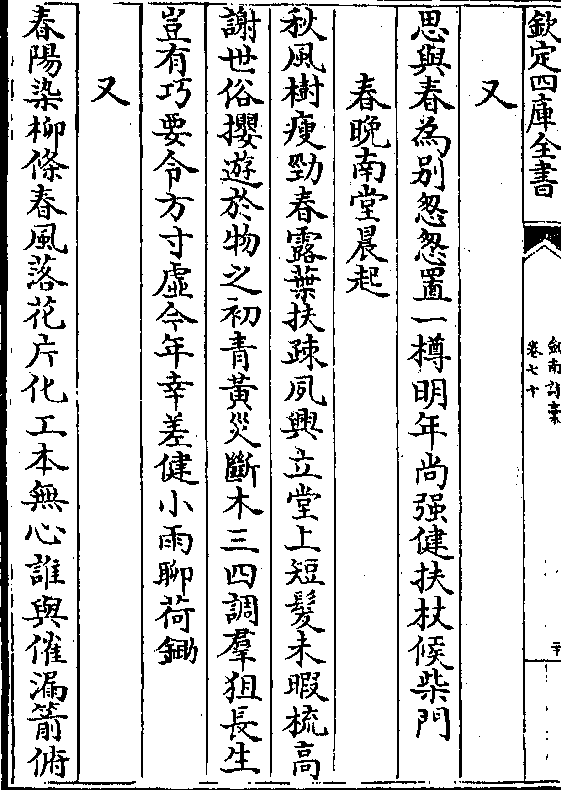 欽定四庫全書
劍南詩稾
卷七十
又
思與春為别怱怱置一樽明年尚强健扶杖候柴門
春晚南堂晨起
秋風樹瘦勁春露葉扶疎夙興立堂上短髮未暇梳高
謝世俗攖遊於物之初青黄災斷木三四調羣狙長生
豈有巧要令方寸虛今年幸差健小雨聊荷鋤
又
春陽染柳條春風落花片化工本無心誰與催漏箭俯